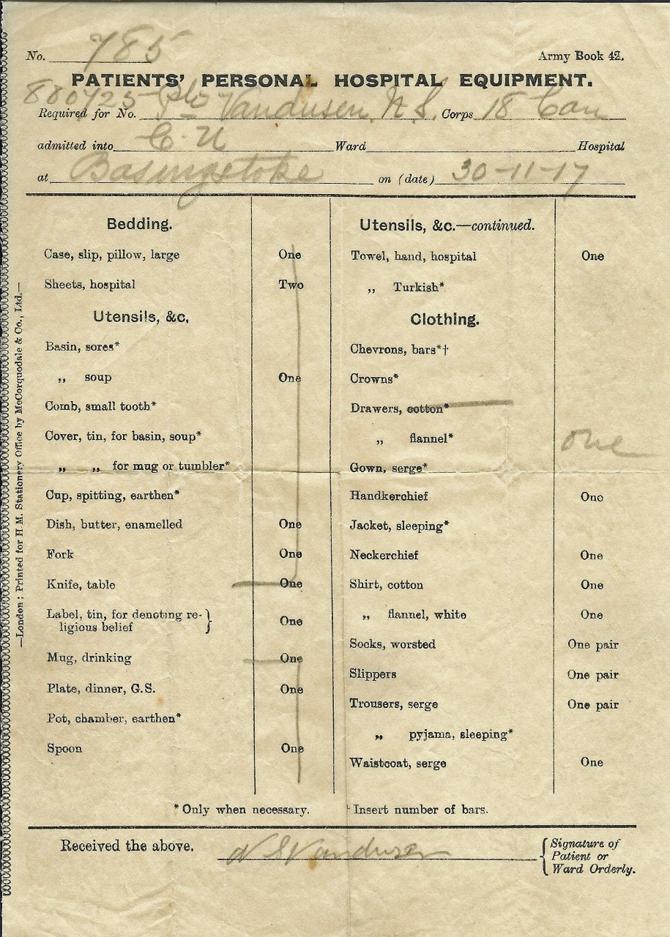 No. 785 Army Book 42.
PATIENTS' PERSONAL HOSPITAL EQUIPMENT.
Required for No. 880425 Pte Vandusen N.S. Corps 18 Can
admitted into C. U Ward Hospital
at Basingstoke on (date) 30-11-17
Bedding.
Case, slip, pillow, large One
Sheets, hospital Two
Utensils, &c.
Basin, sores*
„ soup One
Comb, small tooth*
Cover, tin, for basin, soup*
„ „ for mug or tumbler*
Cup, spitting, earthen*
Dish, butter, enamelled One
Fork One
Knife, table One
Label, tin, for denoting re-
ligious belief } One
Mug, drinking One
Plate, dinner, G.S. One
Pot, chamber, earthen*
Spoon One
Utensils, &c.—continued.
Towel, hand, hospital One
„ Turkish*
Clothing.
Chevrons, bars*†
Crowns*
Drawers, cotton*
„ flannel* one
Gown, serge*
Handkerchief One
Jacket, sleeping*
Neckerchief One
Shirt, cotton One
„ flannel, white One
Socks, worsted One pair
Slippers One pair
Trousers, serge One pair
„ pyjama, sleeping*
Waistcoat, serge One
* Only when necessary. † Insert number of bars.
Received the above. N S Vandusen { Signature of
Patient or
Ward Orderly.
—London : Printed for H.M. Stationery Office by McCorquodale & Co., Ltd.—